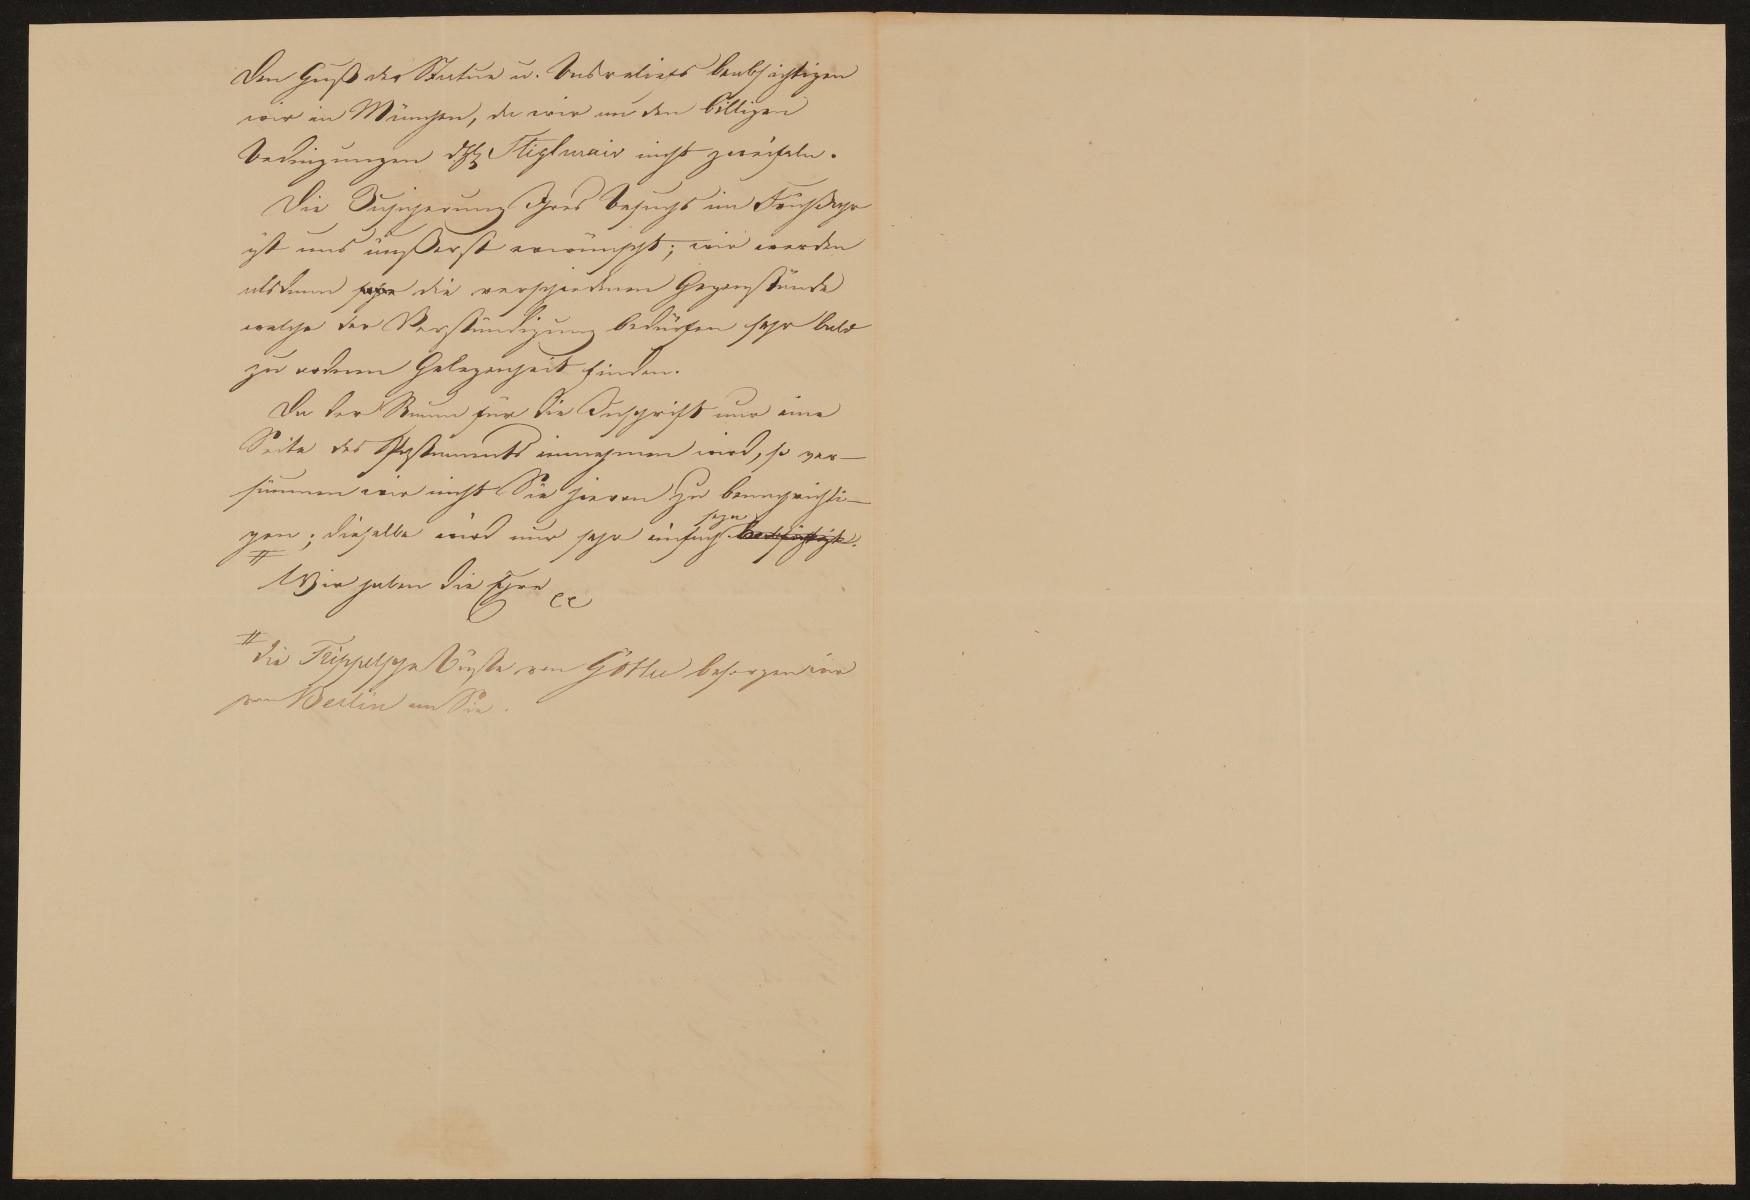 Den Guß der Statue u. Basreliefs beabsichtigen
wir in München, da wir an den billigen
Bedingungen Stiglmair nicht zweifeln.
Die Zusicherung Ihres Besuchs im Frühjahr
ist uns äußerst erwünscht; wir werden
alsdann die verschiedenen Gegenstände
welche der Verständigung bedürfen sehr bald
zu ordnen Gelegenheit finden.
Da der Raum für die Inschrift nur eine
Seite des Postaments einnehmen wird, so ver-
säumen wir nicht Sie hievon zu benachrichti-
gen; dieselbe wird nur sehr einfach seyn.
#
Wir haben die Ehre cc
# die Trippelsche Büste von Göthe besorgen wir
von Berlin an Sie.